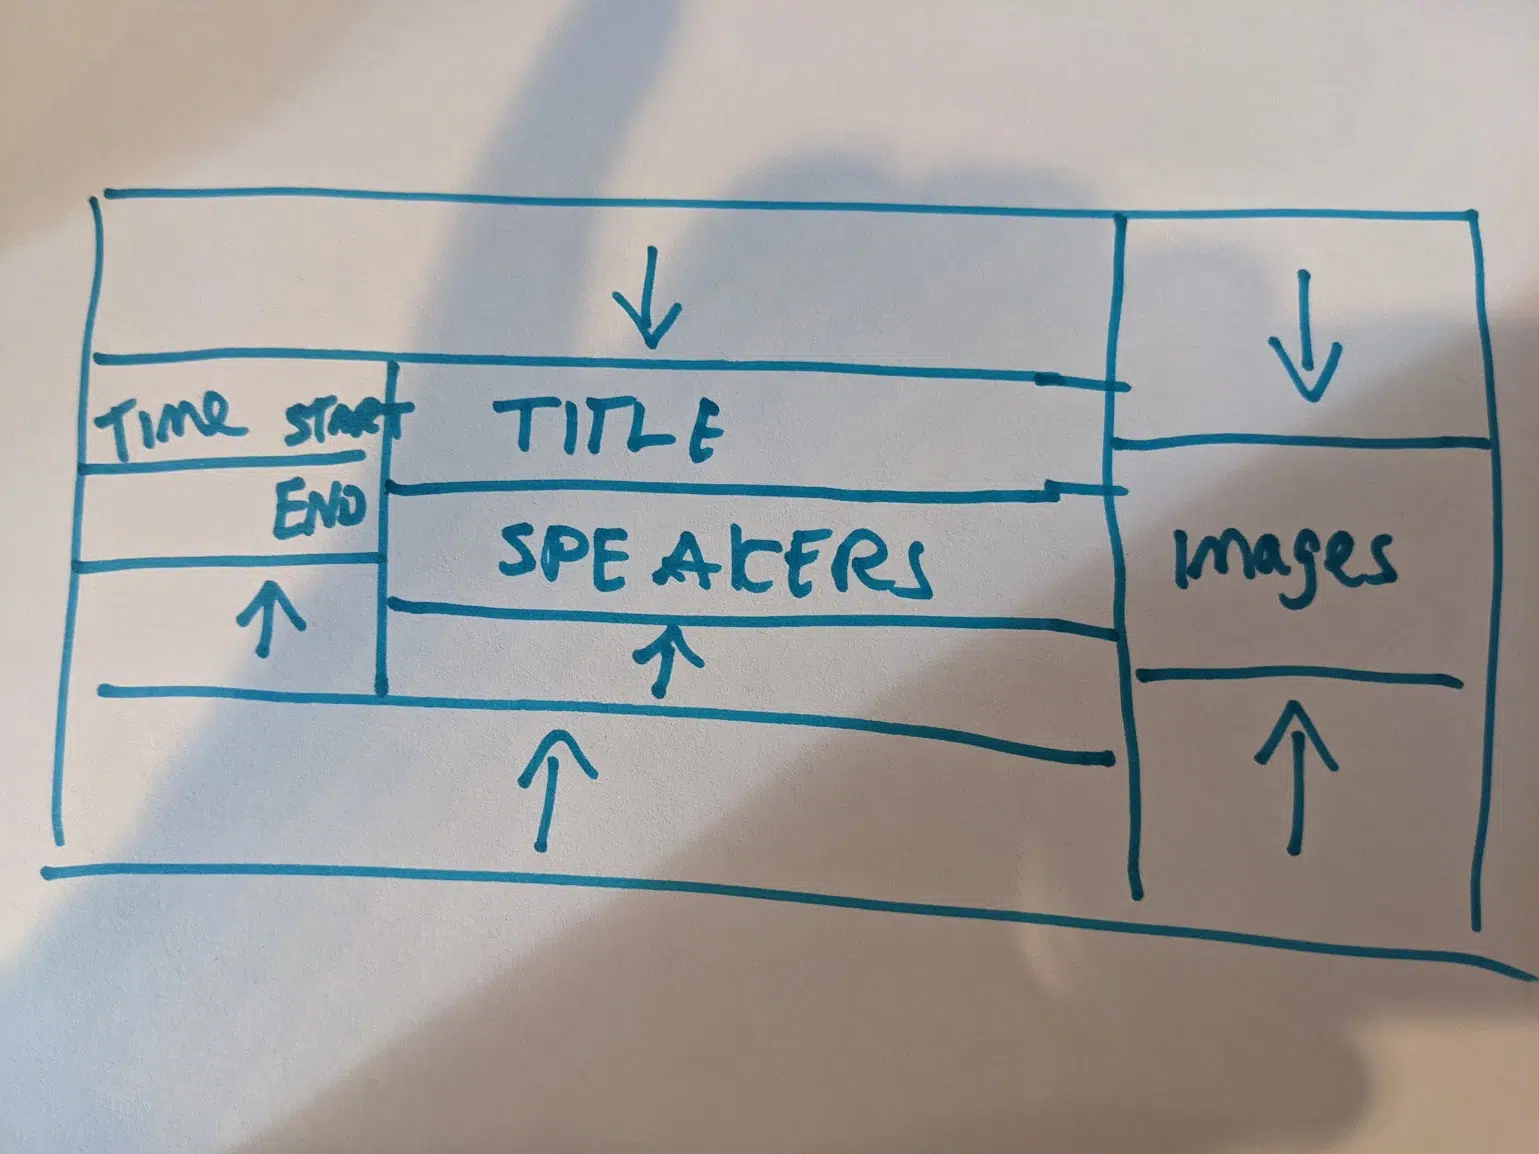 Time START
TITLE
END
SPEAKERS
Images